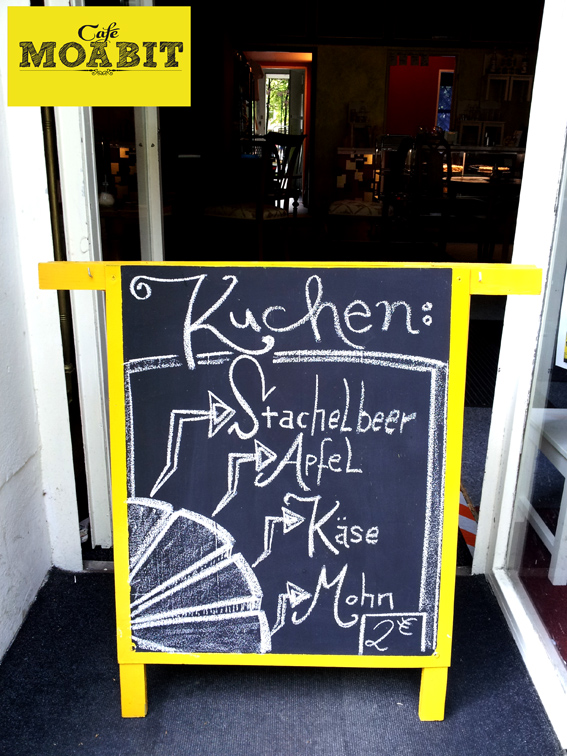 Café
MOABIT
Kuchen:
Stachelbeer
Apfel
Käse
Mohn
2€